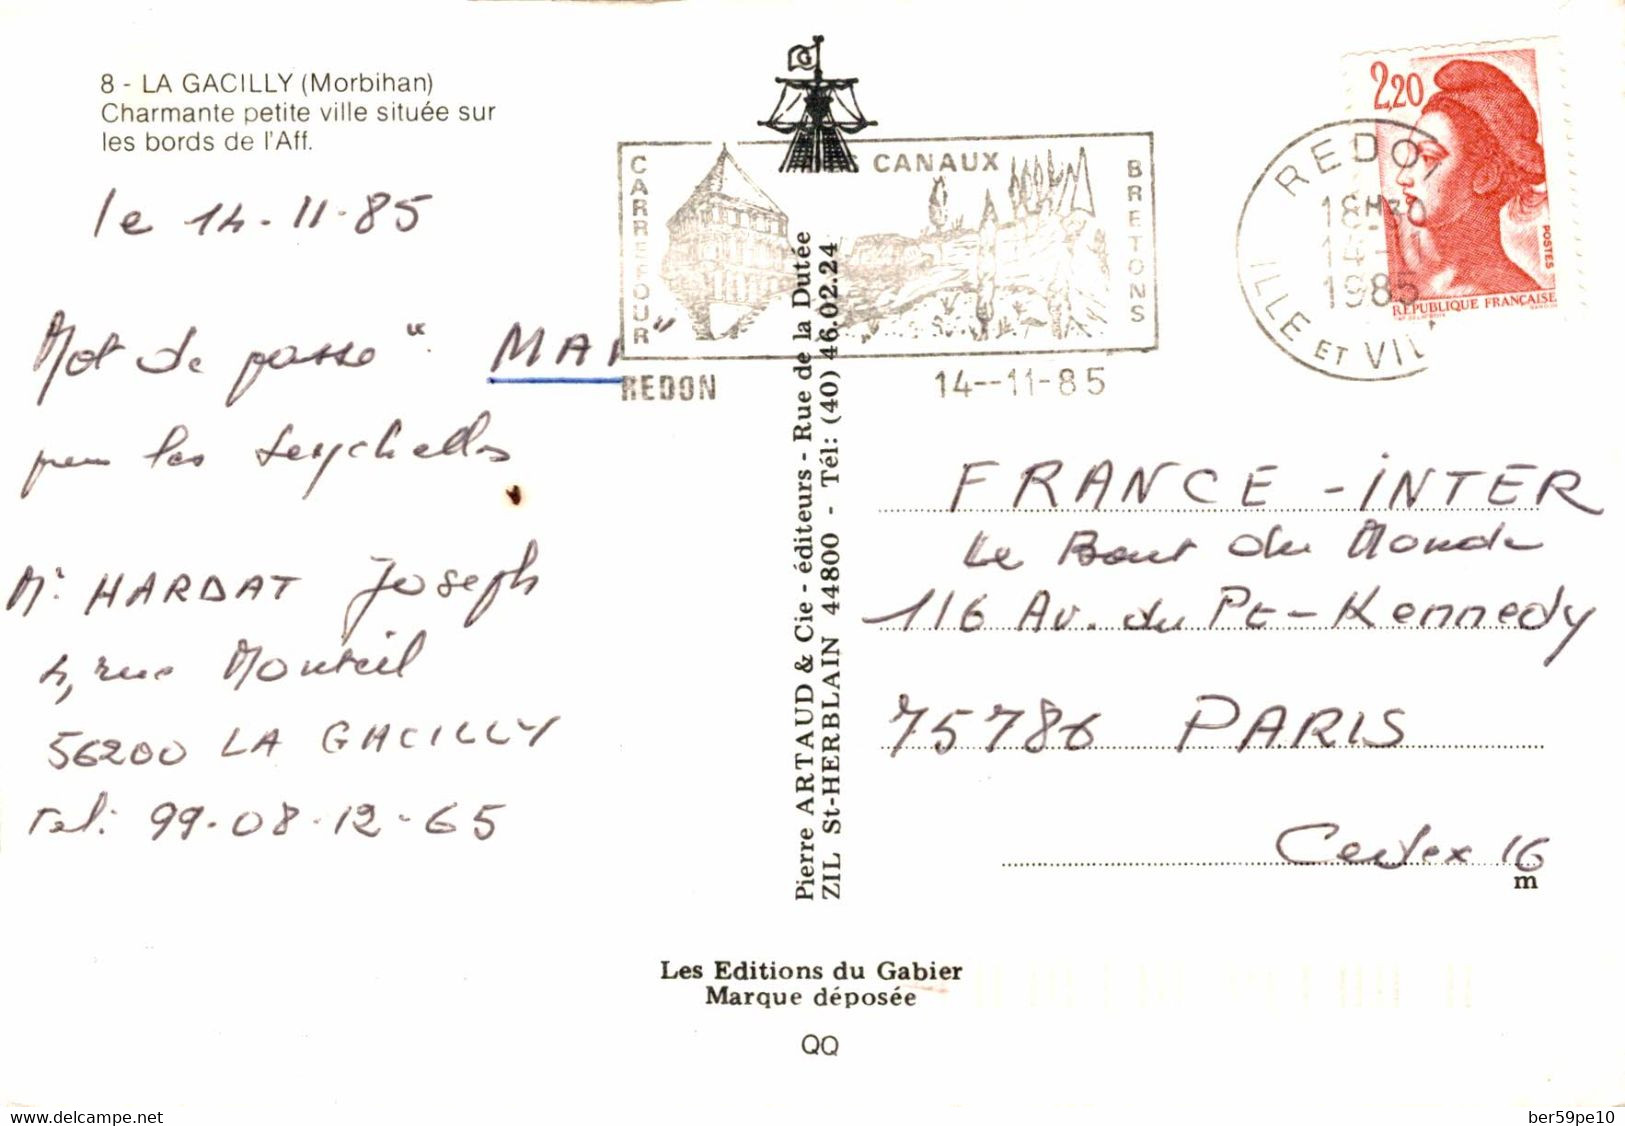 8 - LA GACILLY (Morbihan)
Charmante petite ville située sur
les bords de l'Aff.
le 14-11-85
Mot de passe " MAI "
pour les Seychelles
Mr HARDAT Joseph
4, rue Monteil
56200 LA GACILLY
Tel: 99-08-12-65
CARREFOUR DES CANAUX BRETONS
REDON
14--11-85
Pierre ARTAUD & Cie - éditeurs - Rue de la Dutée
ZIL St-HERBLAIN 44800 - Tél: (40) 46.02.24
2,20
POSTES
REPUBLIQUE FRANÇAISE
REDON
18H30
14-11
1985
ILLE ET VIL
FRANCE-INTER
Le Bout du Monde
116 Av. du Pt-Kennedy
75786 PARIS
Cedex 16
m
Les Editions du Gabier
Marque déposée
QQ
www.delcampe.net
ber59pe10